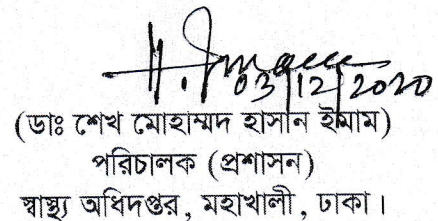 03/12/2020
(ডাঃ শেখ মোহাম্মদ হাসান ইমাম)
পরিচালক (প্রশাসন)
স্বাস্থ্য অধিদপ্তর, মহাখালী, ঢাকা।